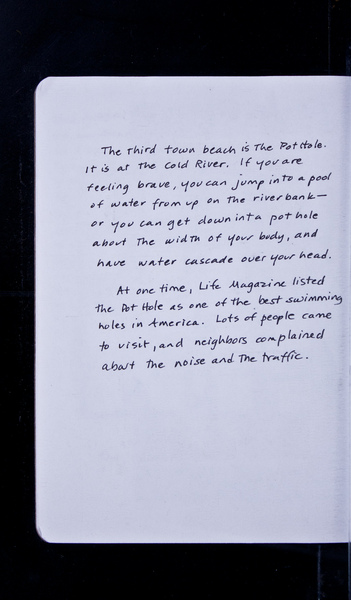 The Third town beach is The Pot Hole.
It is at The Cold River. If you are
feeling brave, you can jump into a pool
of water from up on The riverbank—
or you can get down into a pot hole
about The width of your body, and
have water cascade over your head.
At one time, Life Magazine listed
the Pot Hole as one of the best swimming
holes in America. Lots of people came
to visit, and neighbors complained
about The noise and The traffic.